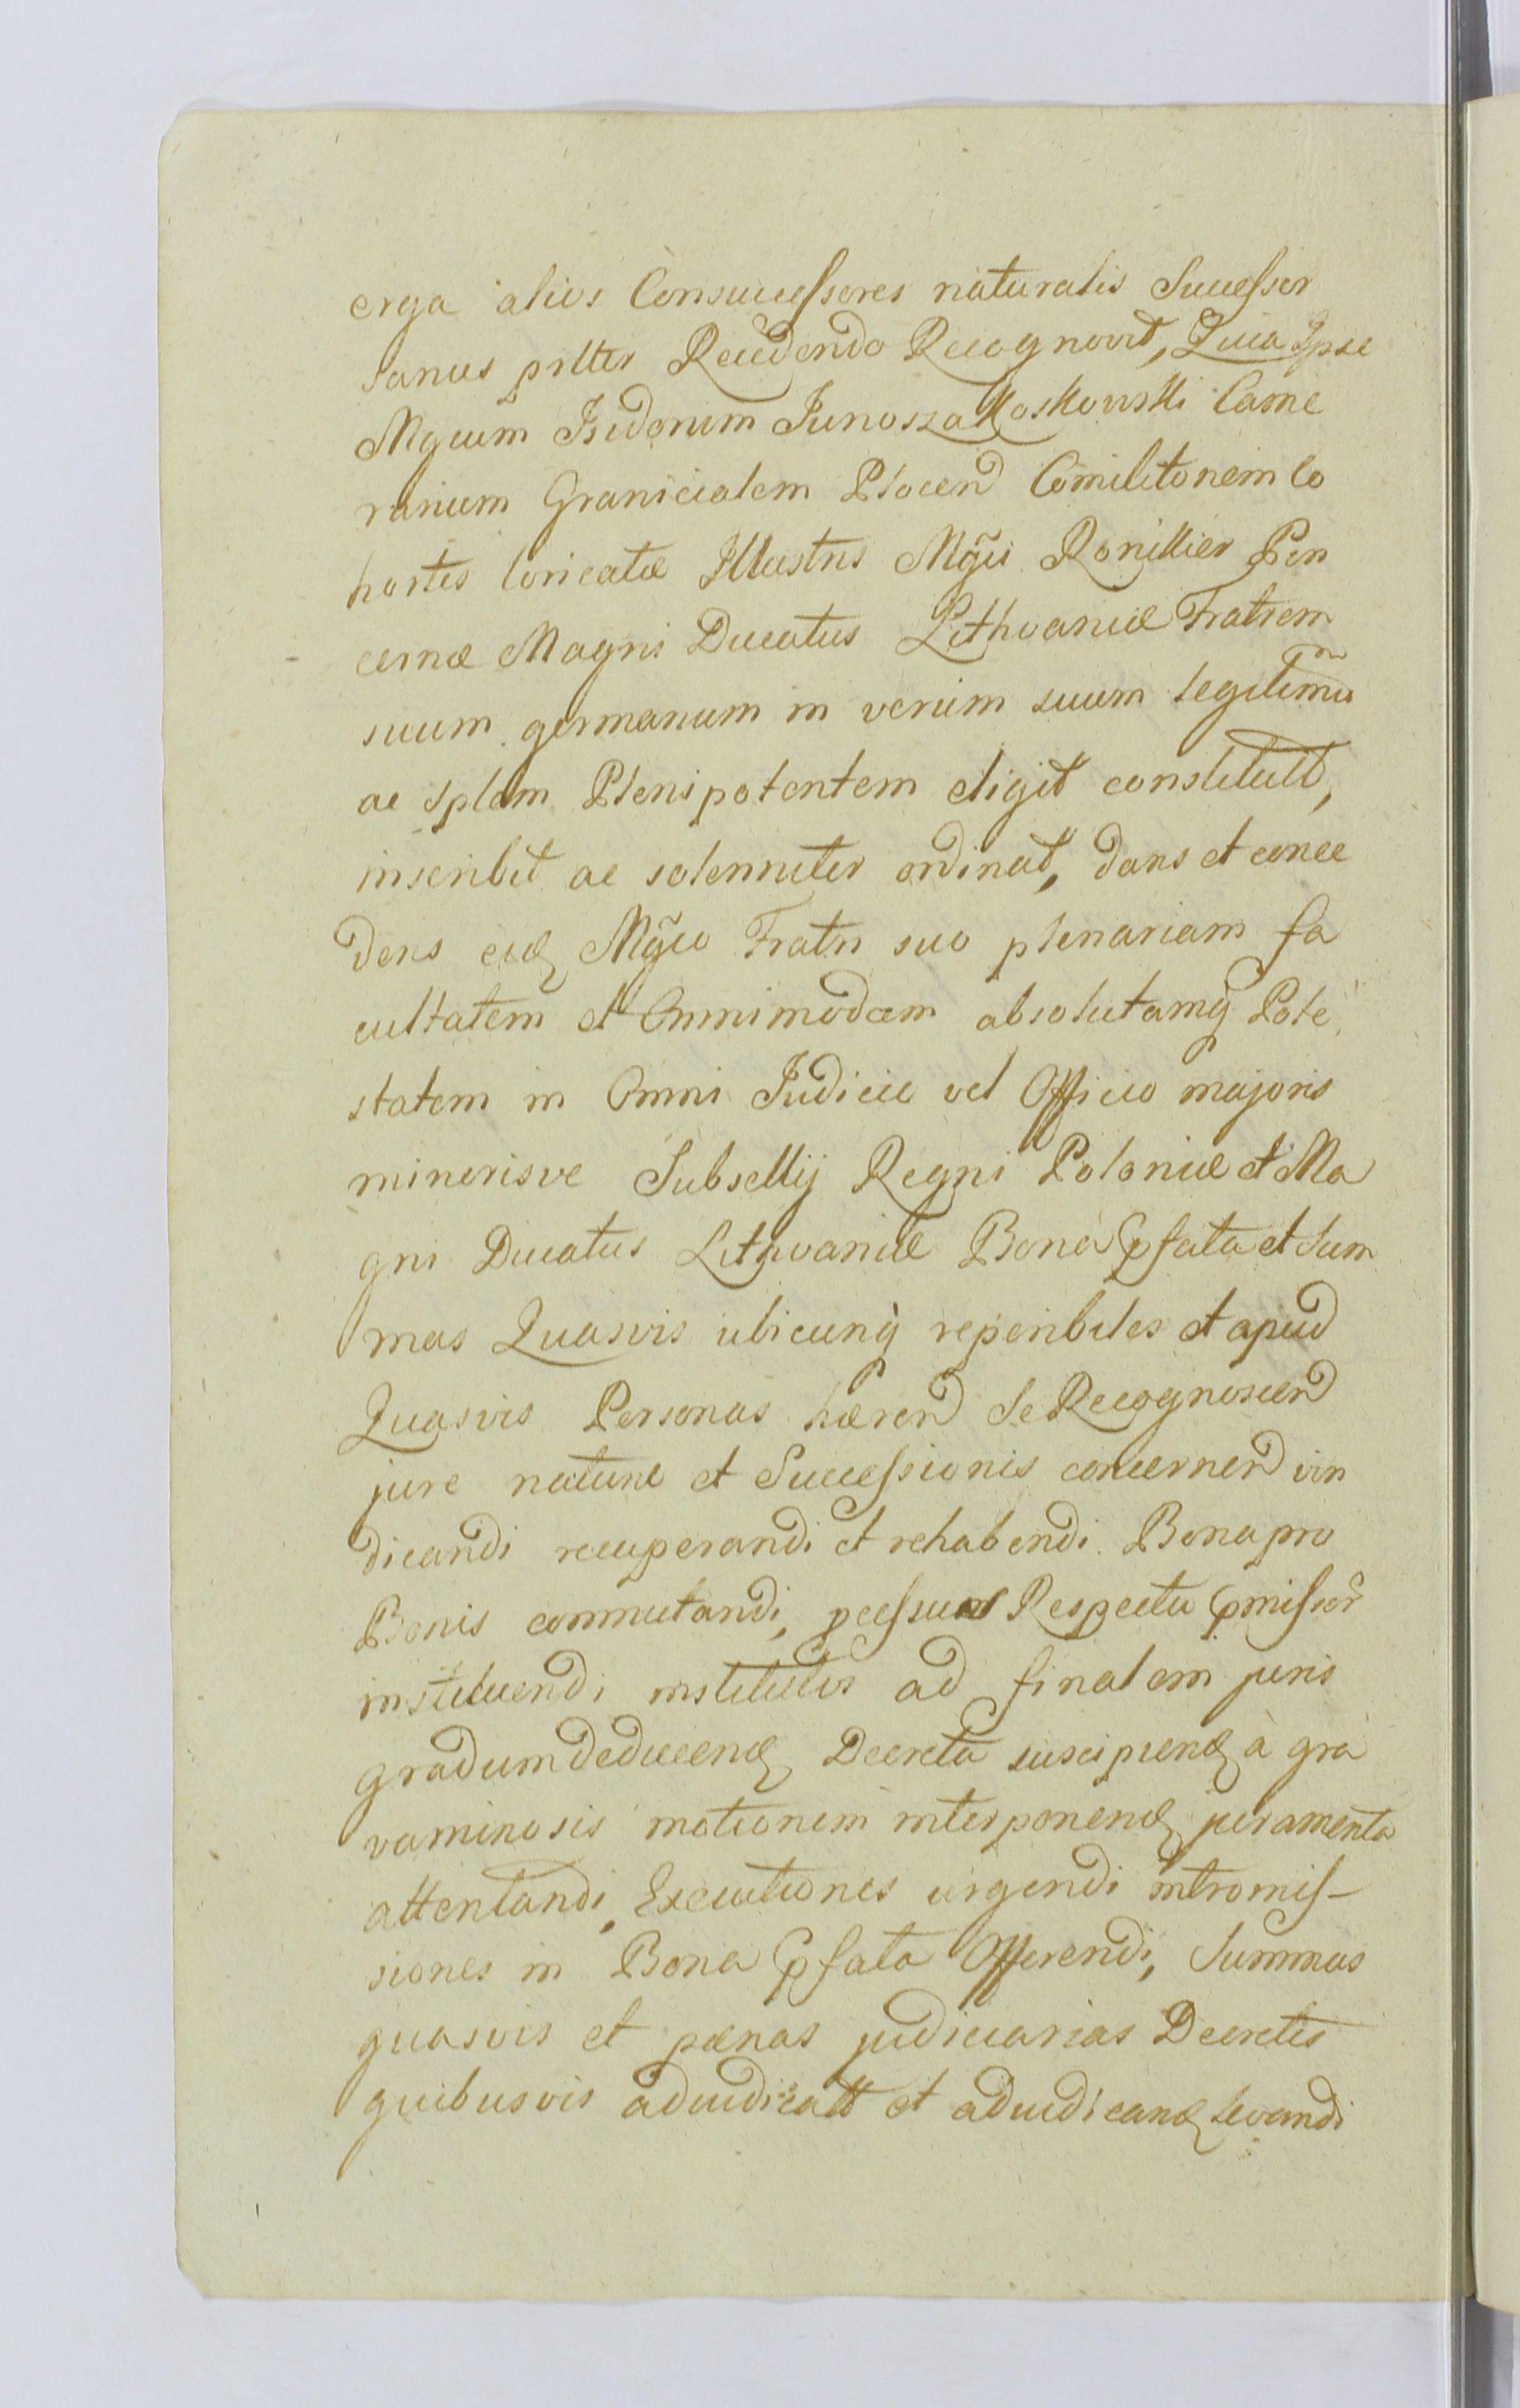 erga alios Consuccessores naturalis Successor
sanus pntter Recedendo Recognovit, Quia Ipse
Mgcum Isidorum Junosza Koskowski Came
rarium Granicialem Plocen Comilitonem Co
hortis loricatæ Illustris Mgci Ronikier Pin
cernæ Magni Ducatus Lithvaniæ Fratrem
suum germanum in verum suum legitimu
ac splem Plenipotentem eligit constituit,
inscribit ac solenniter ordinat, dans et conce
dens eid Mgco Fratri suo plenariam fa
cultatem et Omnimodam absolutamq Pote
statem in Omni Judicio vel Officio majoris
minorisve Subsellij Regni Poloniæ et Ma
gni Ducatus Lithvaniæ Bona pfata et Sum
mas Quasvis ubicunq reperibiles et apud
Quasvis Personas hæren se Recognoscen
jure naturæ et Successionis concernen vin
dicandi recuperandi et rehabendi. Bona pro
Bonis commutandi, Respectu pmissor
instituendi institutis ad finalem juris
gradum deducend Decreta suscipiend à gra
vaminosis motionem interponend juramenta
attentandi, Executiones urgendi intromis-
siones in Bona pfata Offerendi, Summas
quasvis et pænas judiciarias Decretis
quibusvis adiudicatt et adiudicand levandi